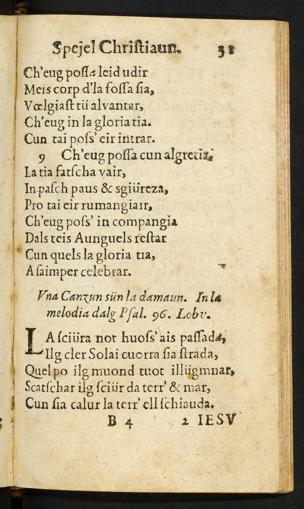 Spejel Chriſtiaun. 31
Ch'eug poſſa leid udir
Meis corp d'la foſſa ſia,
Vœlgiaſt tü alvantar,
Ch'eug in la gloria tia.
Cun tai poſſ' eir intrar.
9 Ch'eug poſſa cun algretia,
La tia fatſcha vair,
In paſch paus & sgiüreza,
Pro tai eir rumangiair,
Ch'eug poſſ' in compangia
Dals teis Aunguels reſtar
Cun quels la gloria tia,
A ſaimper celebrar.
Vna Canzun ſün la damaun. In la
melodia dalg Pſal. 96. Lobv.
LA ſciüra not huoſſ' ais paſſada,
Ilg cler Solai cuerra ſia ſtrada,
Quel po ilg muond tuot illügmnar,
Scatſchar ilg ſciür da terr' & mar,
Cun ſia calur la terr' ell ſchiauda.
B 4 2 IESV